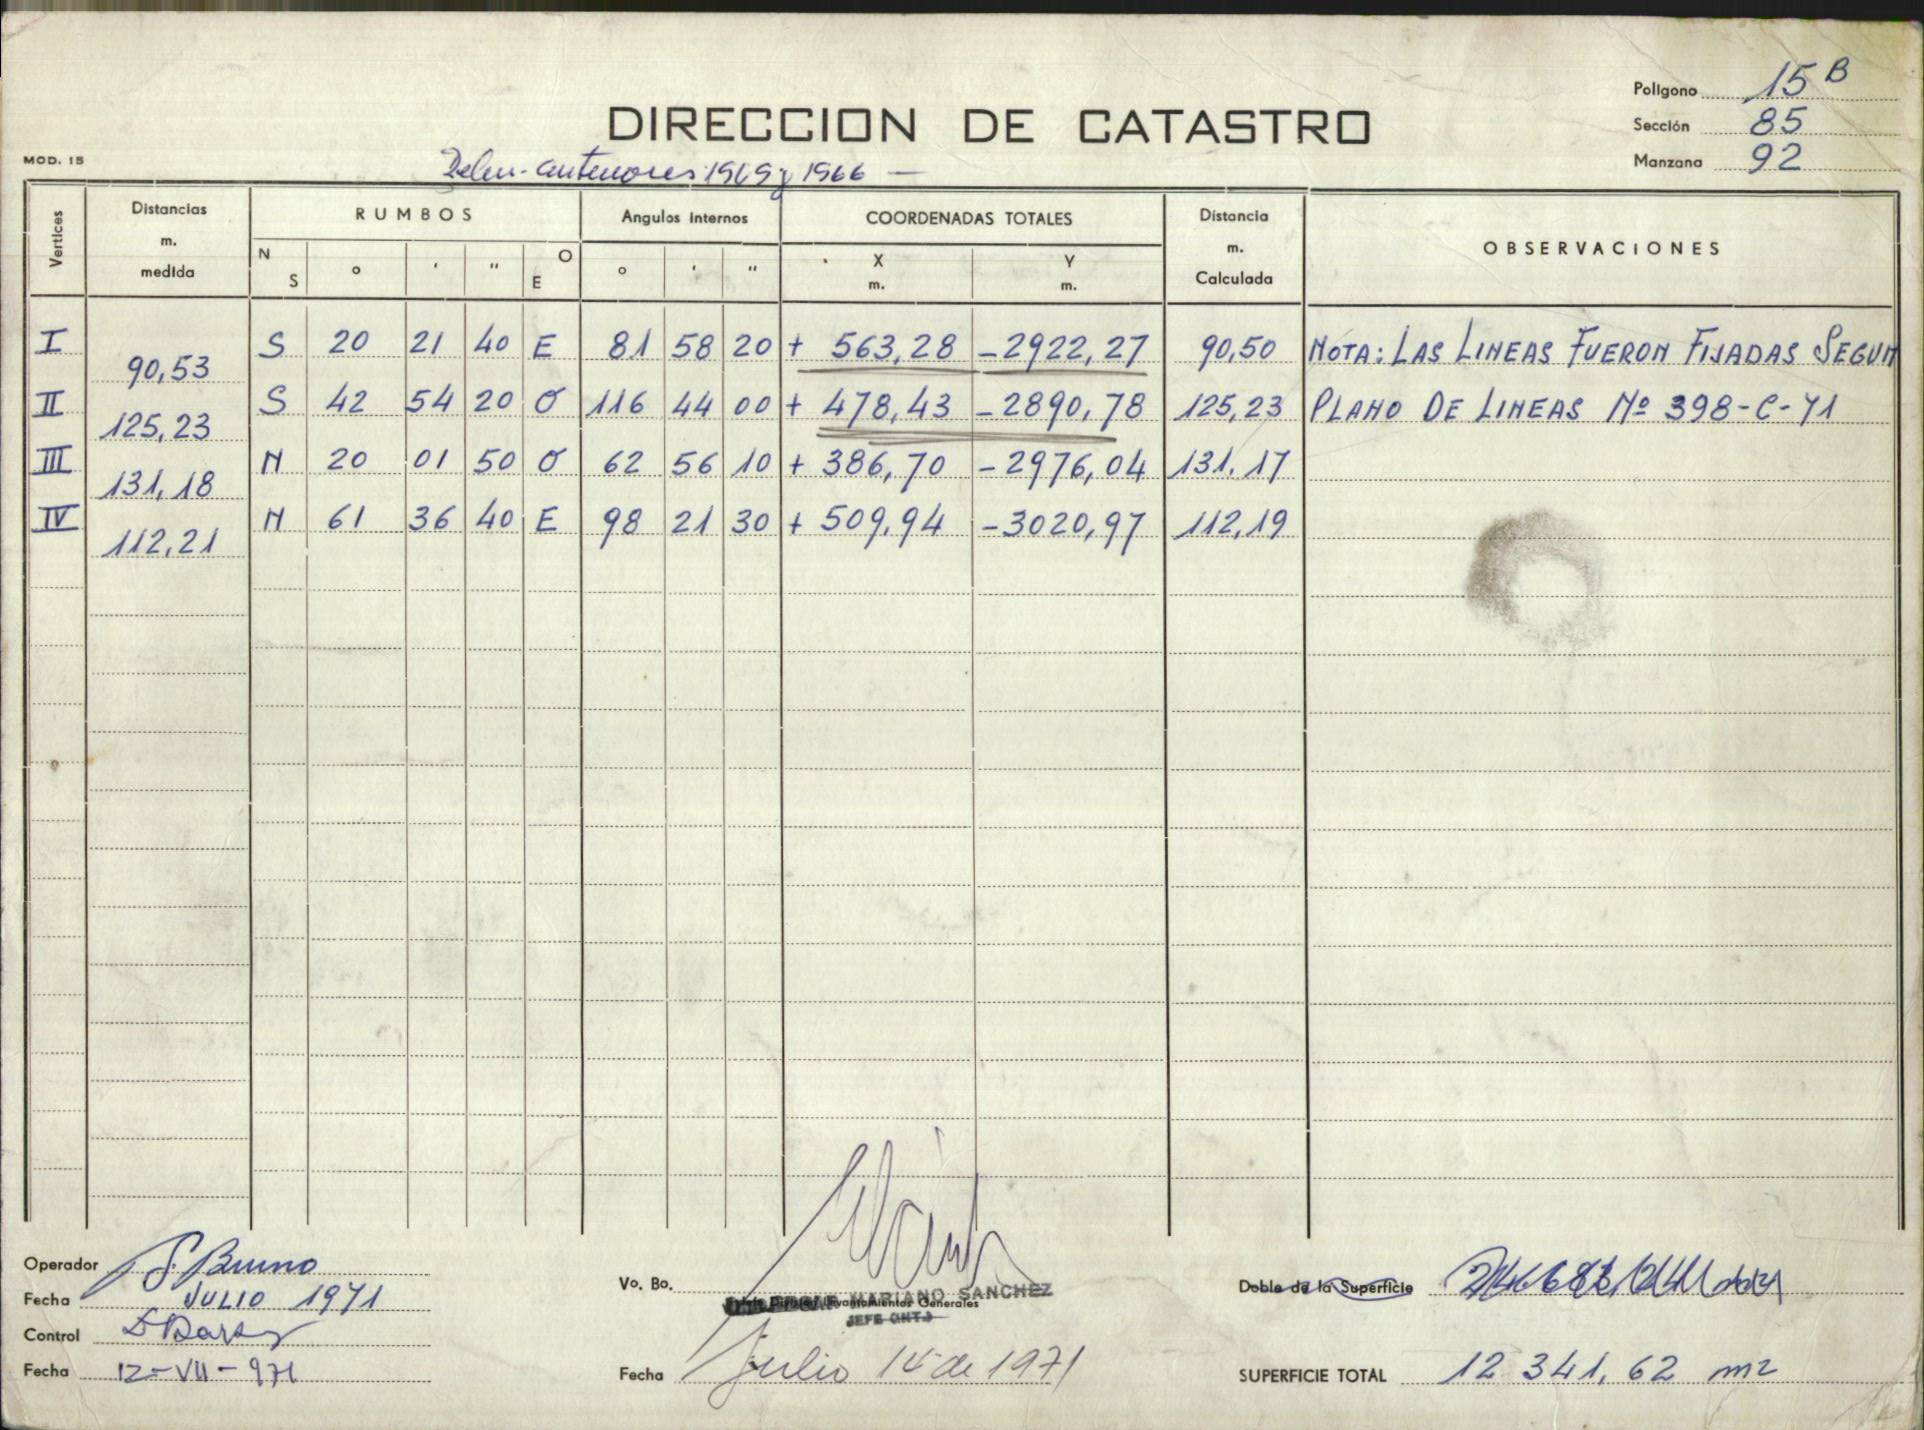 Polígono 15 B
DIRECCION DE CATASTRO
Sección 85
MOD. 15
anteriores 1965 y 1966 —
Manzana 92
Vertices Distancias m. medida RUMBOS Angulos internos COORDENADAS TOTALES Distancia m. Calculada OBSERVACIONES
N S ° ' " O E ° ' " X m. Y m.
I S 20 21 40 E 81 58 20 + 563,28 -2922,27 90,50 NOTA: LAS LINEAS FUERON FIJADAS SEGUN
90,53
II S 42 54 20 O 116 44 00 + 478,43 -2890,78 125,23 PLANO DE LINEAS Nº 398-C-71
125,23
III N 20 01 50 O 62 56 10 + 386,70 -2976,04 131,17
131,18
IV N 61 36 40 E 98 21 30 + 509,94 -3020,97 112,19
112,21
Operador S. Bruno
Vo. Bo. MARIANO SANCHEZ
Doble de la Superficie
Fecha JULIO 1971
Levantamientos Generales
JEFE
Control
Fecha 12-VII-971
Fecha Julio 14 de 1971
SUPERFICIE TOTAL 12 341,62 m2